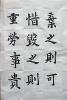 棄之則可
惜毀之則
重勞事貴